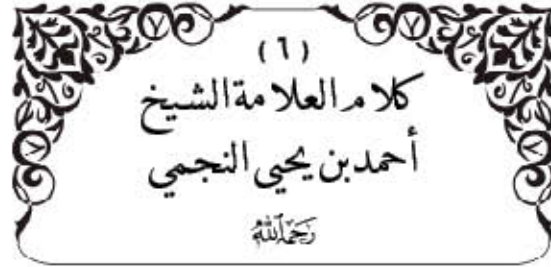 (٦)
كلام العلامة الشيخ
أحمد بن يحيى النجمي
رحمه الله